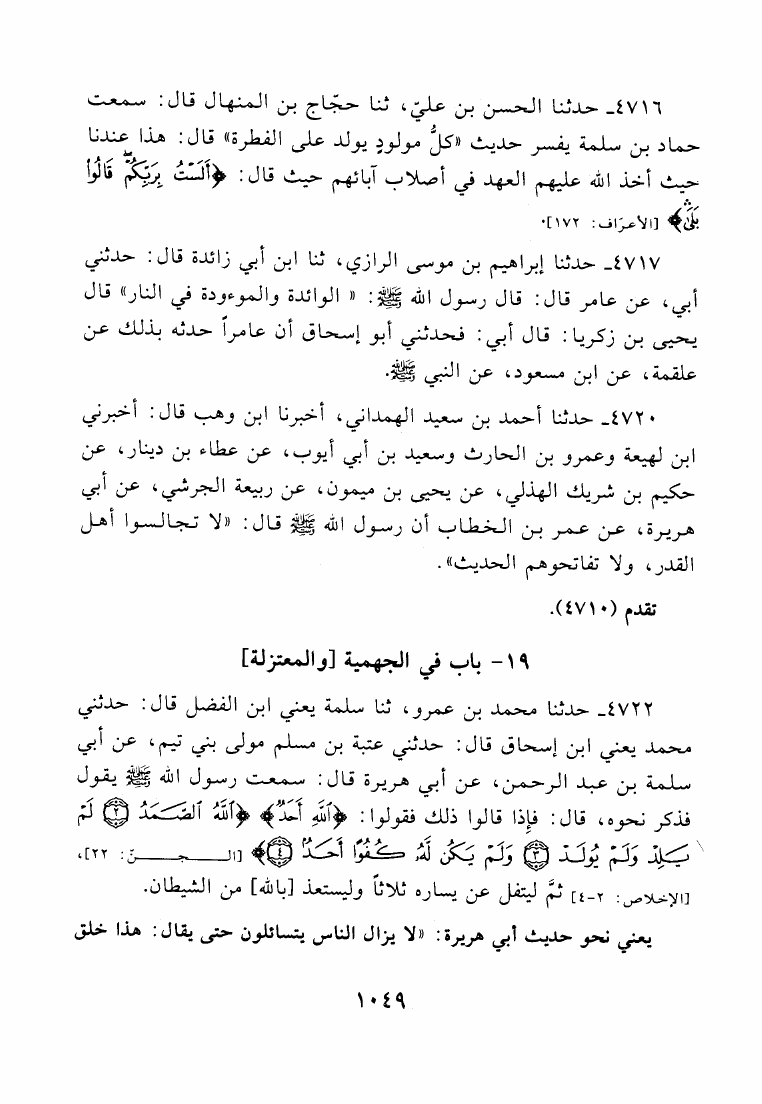 ٤٧١٦ـ حدثنا الحسن بن عليّ، ثنا حجّاج بن المنهال قال: سمعت
حماد بن سلمة يفسر حديث «كلُّ مولودٍ يولد على الفطرة» قال: هذا عندنا
حيث أخذ الله عليهم العهد في أصلاب آبائهم حيث قال: ﴿أَلَسْتُ بِرَبِّكُمْ ۖ قَالُوا۟
بَلَىٰ ۛ﴾ [الأعرَاف: ١٧٢].
٤٧١٧ـ حدثنا إبراهيم بن موسى الرازي، ثنا ابن أبي زائدة قال: حدثني
أبي، عن عامر قال: قال رسول الله ﷺ: « الوائدة والموءودة في النار» قال
يحيى بن زكريا: قال أبي: فحدثني أبو إسحاق أن عامراً حدثه بذلك عن
علقمة، عن ابن مسعود، عن النبي ﷺ.
٤٧٢٠ـ حدثنا أحمد بن سعيد الهمداني، أخبرنا ابن وهب قال: أخبرني
ابن لهيعة وعمرو بن الحارث وسعيد بن أبي أيوب، عن عطاء بن دينار، عن
حكيم بن شريك الهذلي، عن يحيى بن ميمون، عن ربيعة الجرشي، عن أبي
هريرة، عن عمر بن الخطاب أن رسول الله ﷺ قال: «لا تجالسوا أهل
القدر، ولا تفاتحوهم الحديث».
تقدم (٤٧١٠).
١٩- باب في الجهمية [والمعتزلة]
٤٧٢٢ـ حدثنا محمد بن عمرو، ثنا سلمة يعني ابن الفضل قال: حدثني
محمد يعني ابن إسحاق قال: حدثني عتبة بن مسلم مولى بني تيم، عن أبي
سلمة بن عبد الرحمن، عن أبي هريرة قال: سمعت رسول الله ﷺ يقول
فذكر نحوه، قال: فإذا قالوا ذلك فقولوا: ﴿ٱللَّهِ أَحَدٌ﴾ ﴿ٱللَّهُ ٱلصَّمَدُ ۝٢ لَمْ
يَلِدْ وَلَمْ يُولَدْ ۝٣ وَلَمْ يَكُن لَّهُۥ كُفُوًا أَحَدٌۢ ۝٤﴾ [الـجـنّ: ٢٢]،
[الإخلاص: ٢-٤] ثمَّ ليتفل عن يساره ثلاثاً وليستعذ [بالله] من الشيطان.
يعني نحو حديث أبي هريرة: «لا يزال الناس يتسائلون حتى يقال: هذا خلق
١٠٤٩